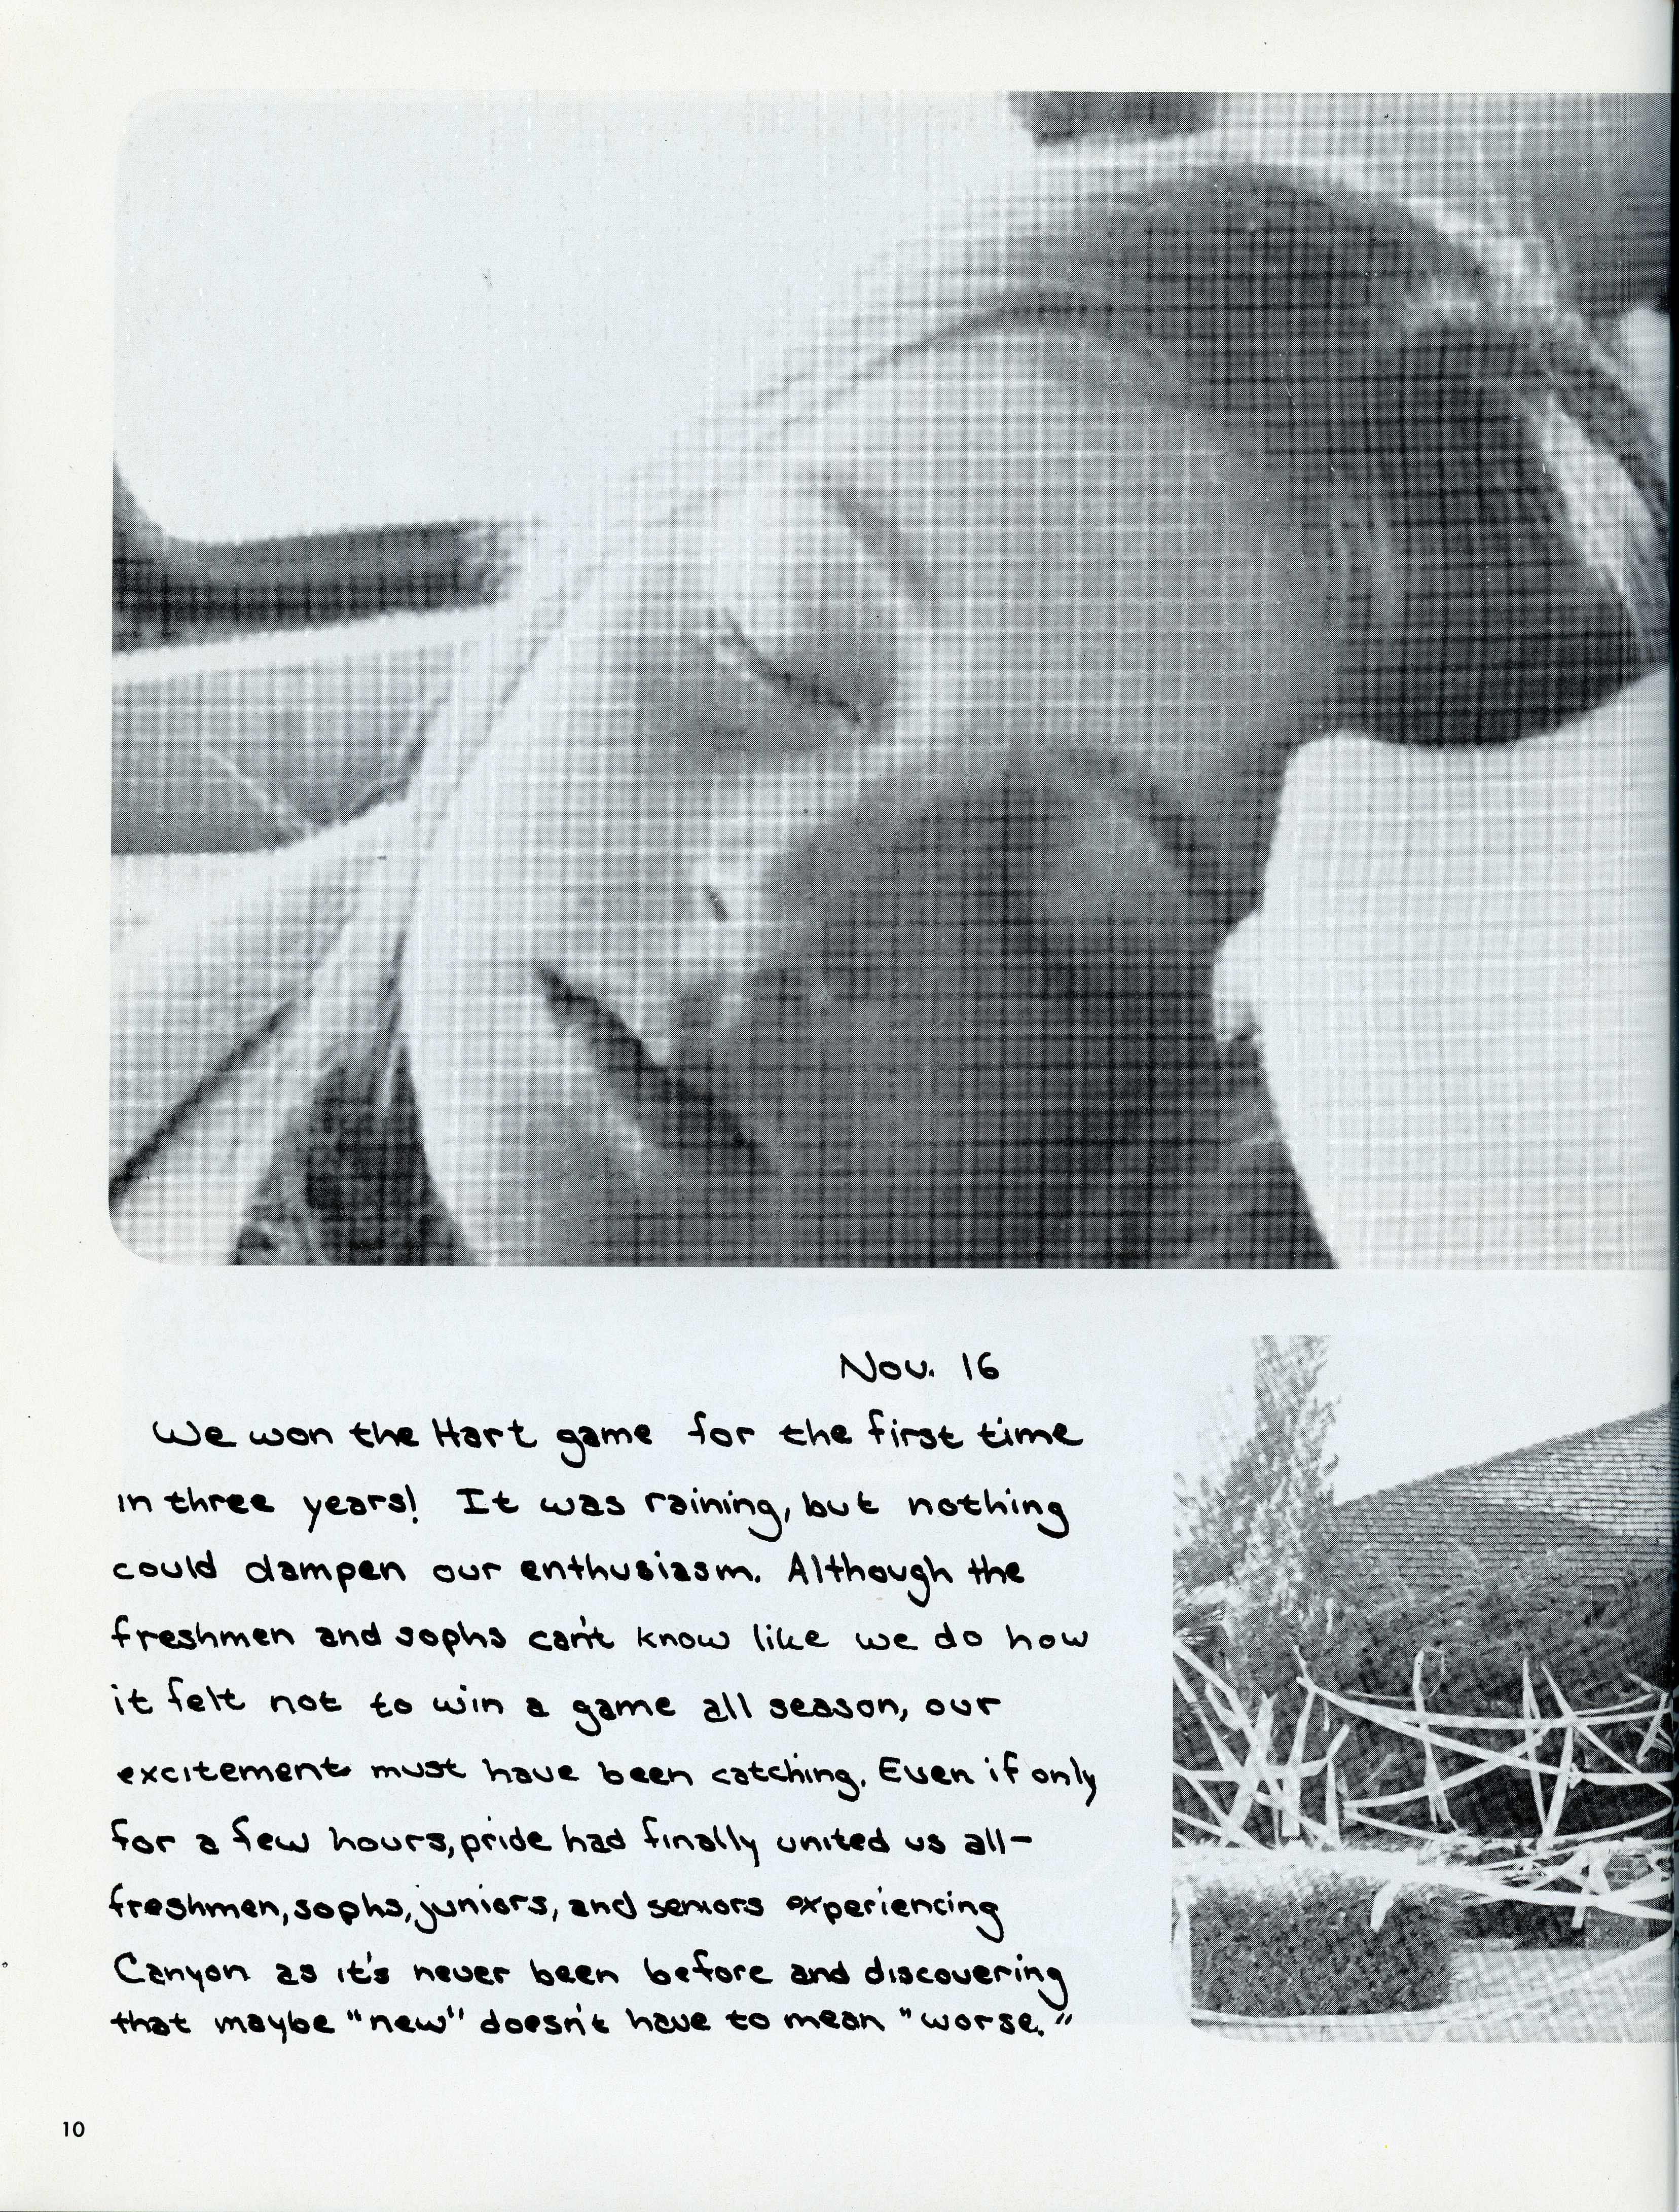 Nov. 16
We won the Hart game for the first time
in three years! It was raining, but nothing
could dampen our enthusiasm. Although the
freshmen and sophs can't know like we do how
it felt not to win a game all season, our
excitement must have been catching. Even if only
for a few hours, pride had finally united us all-
freshmen, sophs, juniors, and seniors experiencing
Canyon as it's never been before and discovering
that maybe "new" doesn't have to mean "worse."
10